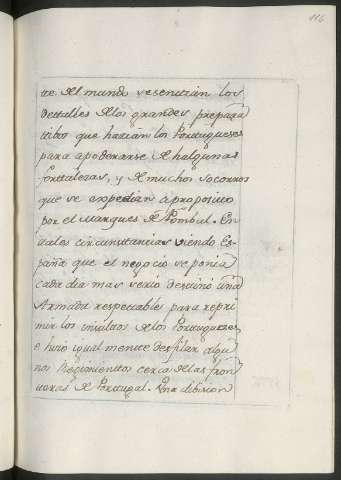 116
te del mundo se sentian los
dettalles de los grandes prepara
tibos que hazian los Portugueses
para apoderarse de halgunas
forttalezas, y de muchos socorros
que se expedian a proposito
por el Marques de Pombal. En
tales circunstancias viendo Es-
paña que el negocio se ponia
cada dia mas serio destinó una
Armada respectable para repri
mir los insultos de los Portugueses
e hizo igual mente desfilar algu
nos Regimientos cerca de las fron
teras de Portugal. Una dibision